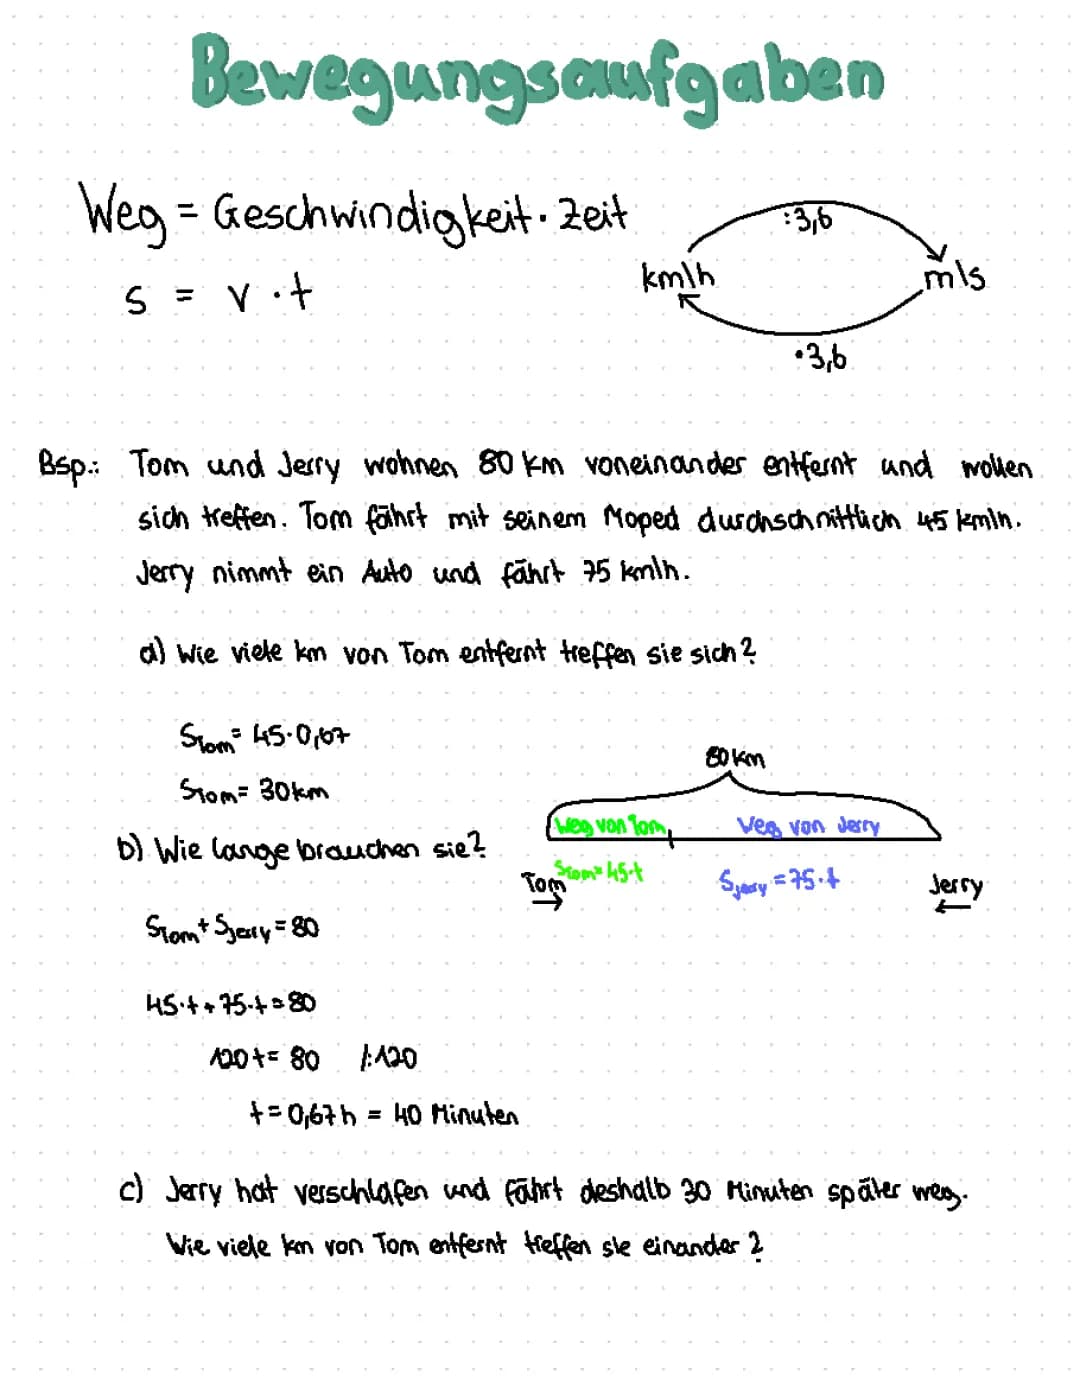 Bewegungsaufgaben
Weg = Geschwindigkeit · Zeit
s = v · t
:3,6
km/h
m/s
·3,6
Bsp.: Tom und Jerry wohnen 80 km voneinander entfernt und wollen
sich treffen. Tom fährt mit seinem Moped durchschnittlich 45 km/h.
Jerry nimmt ein Auto und fährt 75 km/h.
a) Wie viele km von Tom entfernt treffen sie sich?
STom = 45·0,67
STom = 30km
80km
Weg von Tom
Weg von Jerry
b) Wie lange brauchen sie?
STom = 45·t
Sjerry = 75·t
Tom
Jerry
STom + SJerry = 80
45·t + 75·t = 80
120t = 80 /:120
t = 0,67h = 40 Minuten
c) Jerry hat verschlafen und fährt deshalb 30 Minuten später weg.
Wie viele km von Tom entfernt treffen sie einander?